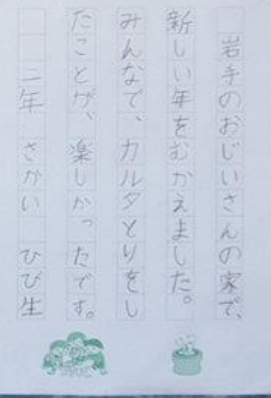 岩手のおじいさんの家で、
新しい年をむかえました。
みんなで、カルタとりをし
たことが、楽しかったです。
二年 さかい ひび生